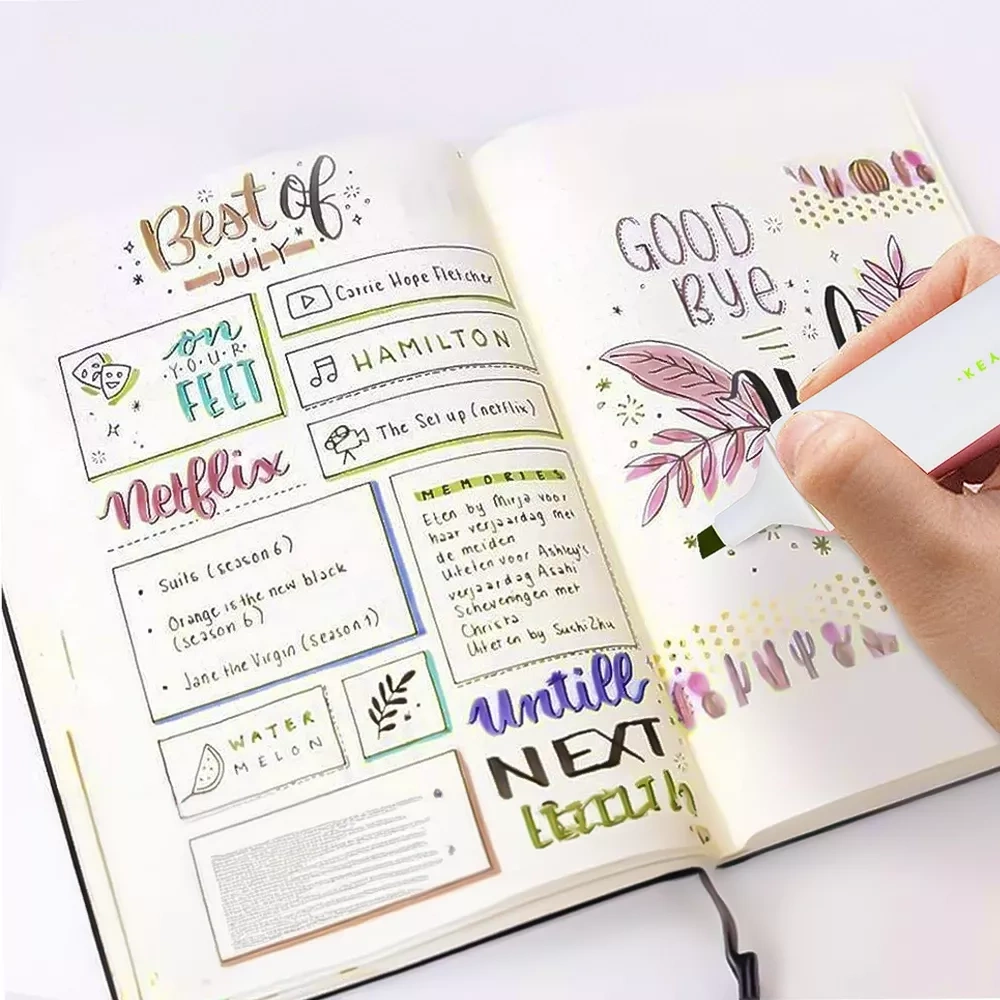 Best of
JULY
on
YOUR
FEET
Carrie Hope Fletcher
HAMILTON
The Set up (netflix)
Netflix
• Suits (season 6)
• Orange is the new black
(season 6)
• Jane the Virgin (season 1)
MEMORIES
Eten by Mirja voor
haar verjaardag met
de meiden
Uiteten voor Ashley's
verjaardag Asahi
Scheveningen met
Christa
Uiteten by SushiZhu
WATER
MELON
Untill
NEXT
GOOD
Bye